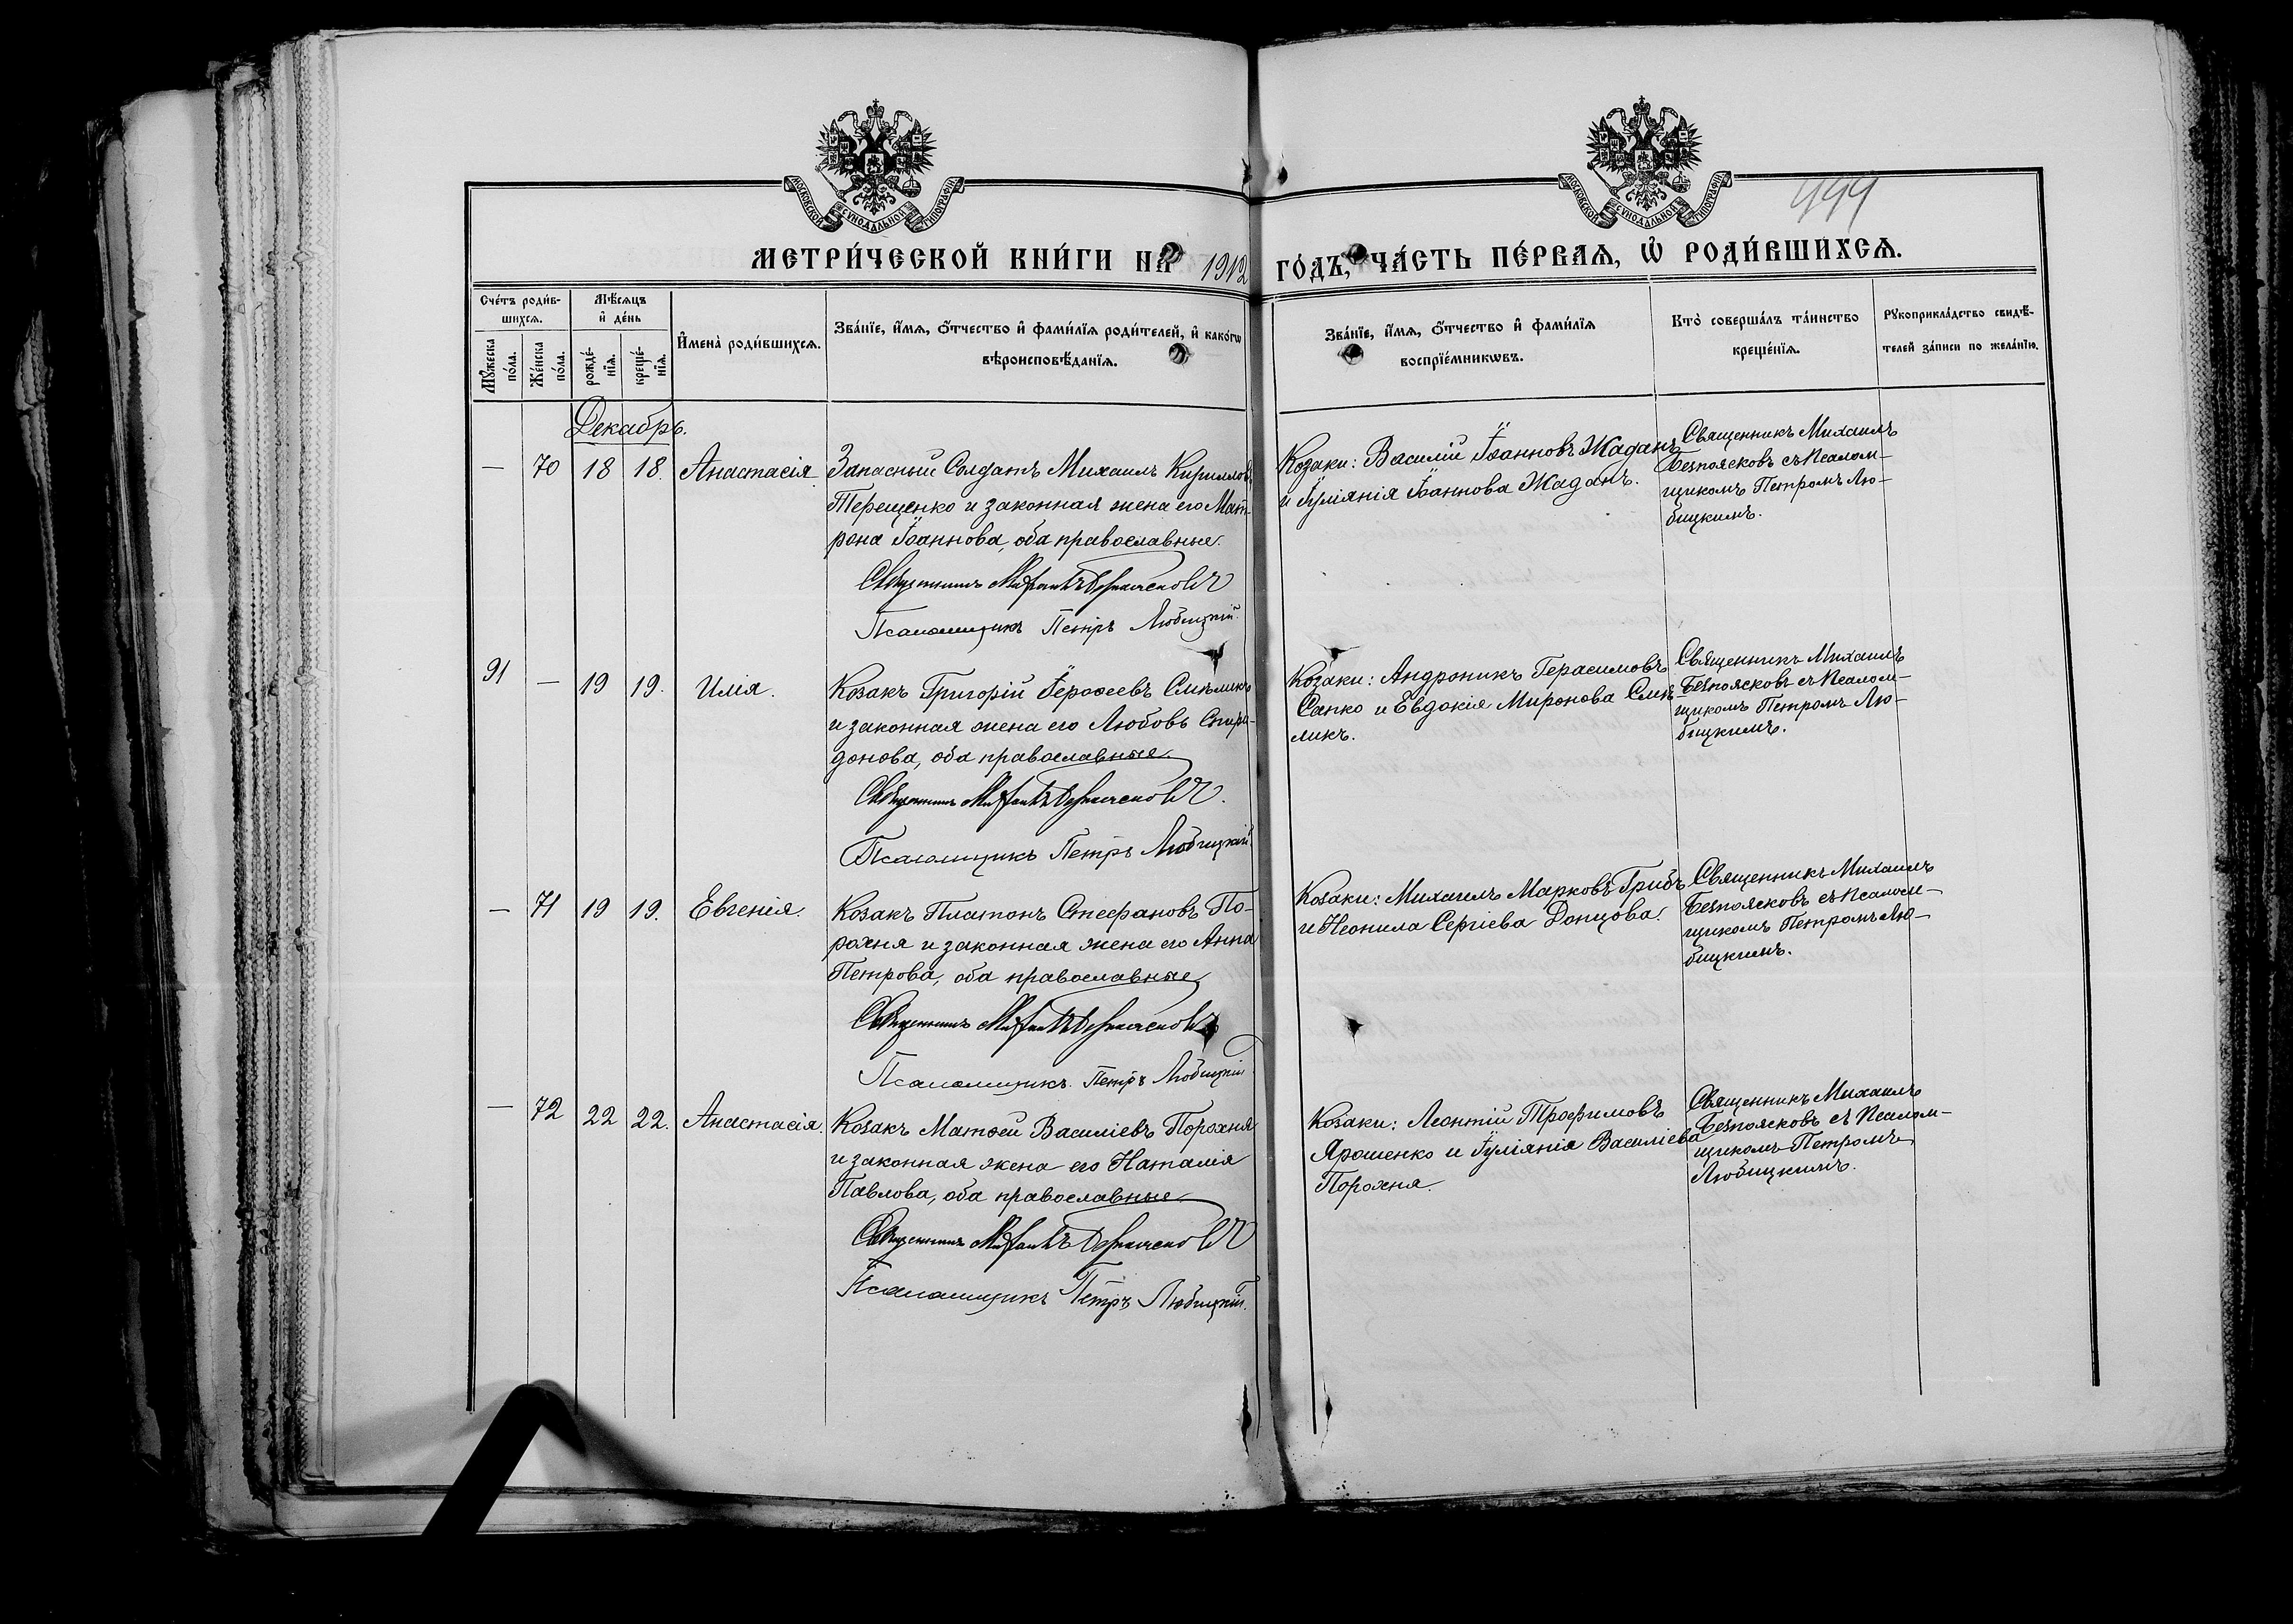 МОСКОВСКОЙ СѴНОДАЛЬНОЙ ТИПОГРАФІИ
МОСКОВСКОЙ СѴНОДАЛЬНОЙ ТИПОГРАФІИ
МЕТРИ́ЧЕСКОЙ КНИ́ГИ НА 1912 ГО́ДЪ, ЧА́СТЬ ПЕ́РВАѦ, Ѽ РОДИ́ВШИХСѦ.
Сче́тъ роди́в-
шихсѧ.
Мꙋ́жеска по́ла.
Же́нска по́ла.
Мѣ́сѧцъ и҆ де́нь
рожде́-нїѧ.
креще́-нїѧ.
И҆мена̀ роди́вшихсѧ.
Зва́нїе, и҆́мѧ, ѻ҆́тчество и҆ фами́лїѧ роди́телей, и҆ како́гѡ
вѣроисповѣ́данїѧ.
Зва́нїе, и҆́мѧ, ѻ҆́тчество и҆ фами́лїѧ
воспрїе́мникѡвъ.
Кто̀ соверша́лъ та́инство
креще́нїѧ.
Рꙋкоприкла́дство свидѣ́-
телей за́писи по жела́нїю.
Декабрь.
— 70 18 18. Анастасія
Запасный Солдатъ Михаилъ Кирилловъ
Терещенко и законная жена его Мат-
рона Іоаннова, оба православные.
Священникъ Михаилъ Безпоясковъ
Псаломщикъ Петръ Любицкій.
Козаки: Василій Іоанновъ Жаданъ
и Іуліянія Іоаннова Жаданъ.
Священникъ Михаилъ
Безпоясковъ съ Псалом-
щикомъ Петромъ Лю-
бицкимъ.
91 — 19 19. Илія.
Козакъ Григорій Іерофеевъ
и законная жена его Любовь Спири-
донова, оба православные.
Священникъ Михаилъ Безпоясковъ.
Псаломщикъ Петръ Любицкій
Козаки: Андроникъ Герасимовъ
Сапко и Евдокія Миронова
ликъ.
Священникъ Михаилъ
Безпоясковъ съ Псалом-
щикомъ Петромъ Лю-
бицкимъ.
— 71 19 19. Евгенія.
Козакъ Платонъ Стефановъ По-
рохня и законная жена его Анна
Петрова, оба православные
Священникъ Михаилъ Безпоясковъ
Псаломщикъ Петръ Любицкій
Козаки: Михаилъ Марковъ Грибъ
и Неонила Сергіева Донцова.
Священникъ Михаилъ
Безпоясковъ съ Псалом-
щикомъ Петромъ Лю-
бицкимъ.
— 72 22 22. Анастасія.
Козакъ Матѳей Василіевъ Порохня
и законная жена его Наталія
Павлова, оба православные
Священникъ Михаилъ Безпоясковъ
Псаломщикъ Петръ Любицкій.
Козаки: Леонтій Трофимовъ
Ярошенко и Іуліянія Василіева
Порохня.
Священникъ Михаилъ
Безпоясковъ съ Псалом-
щикомъ Петромъ
Любицкимъ.